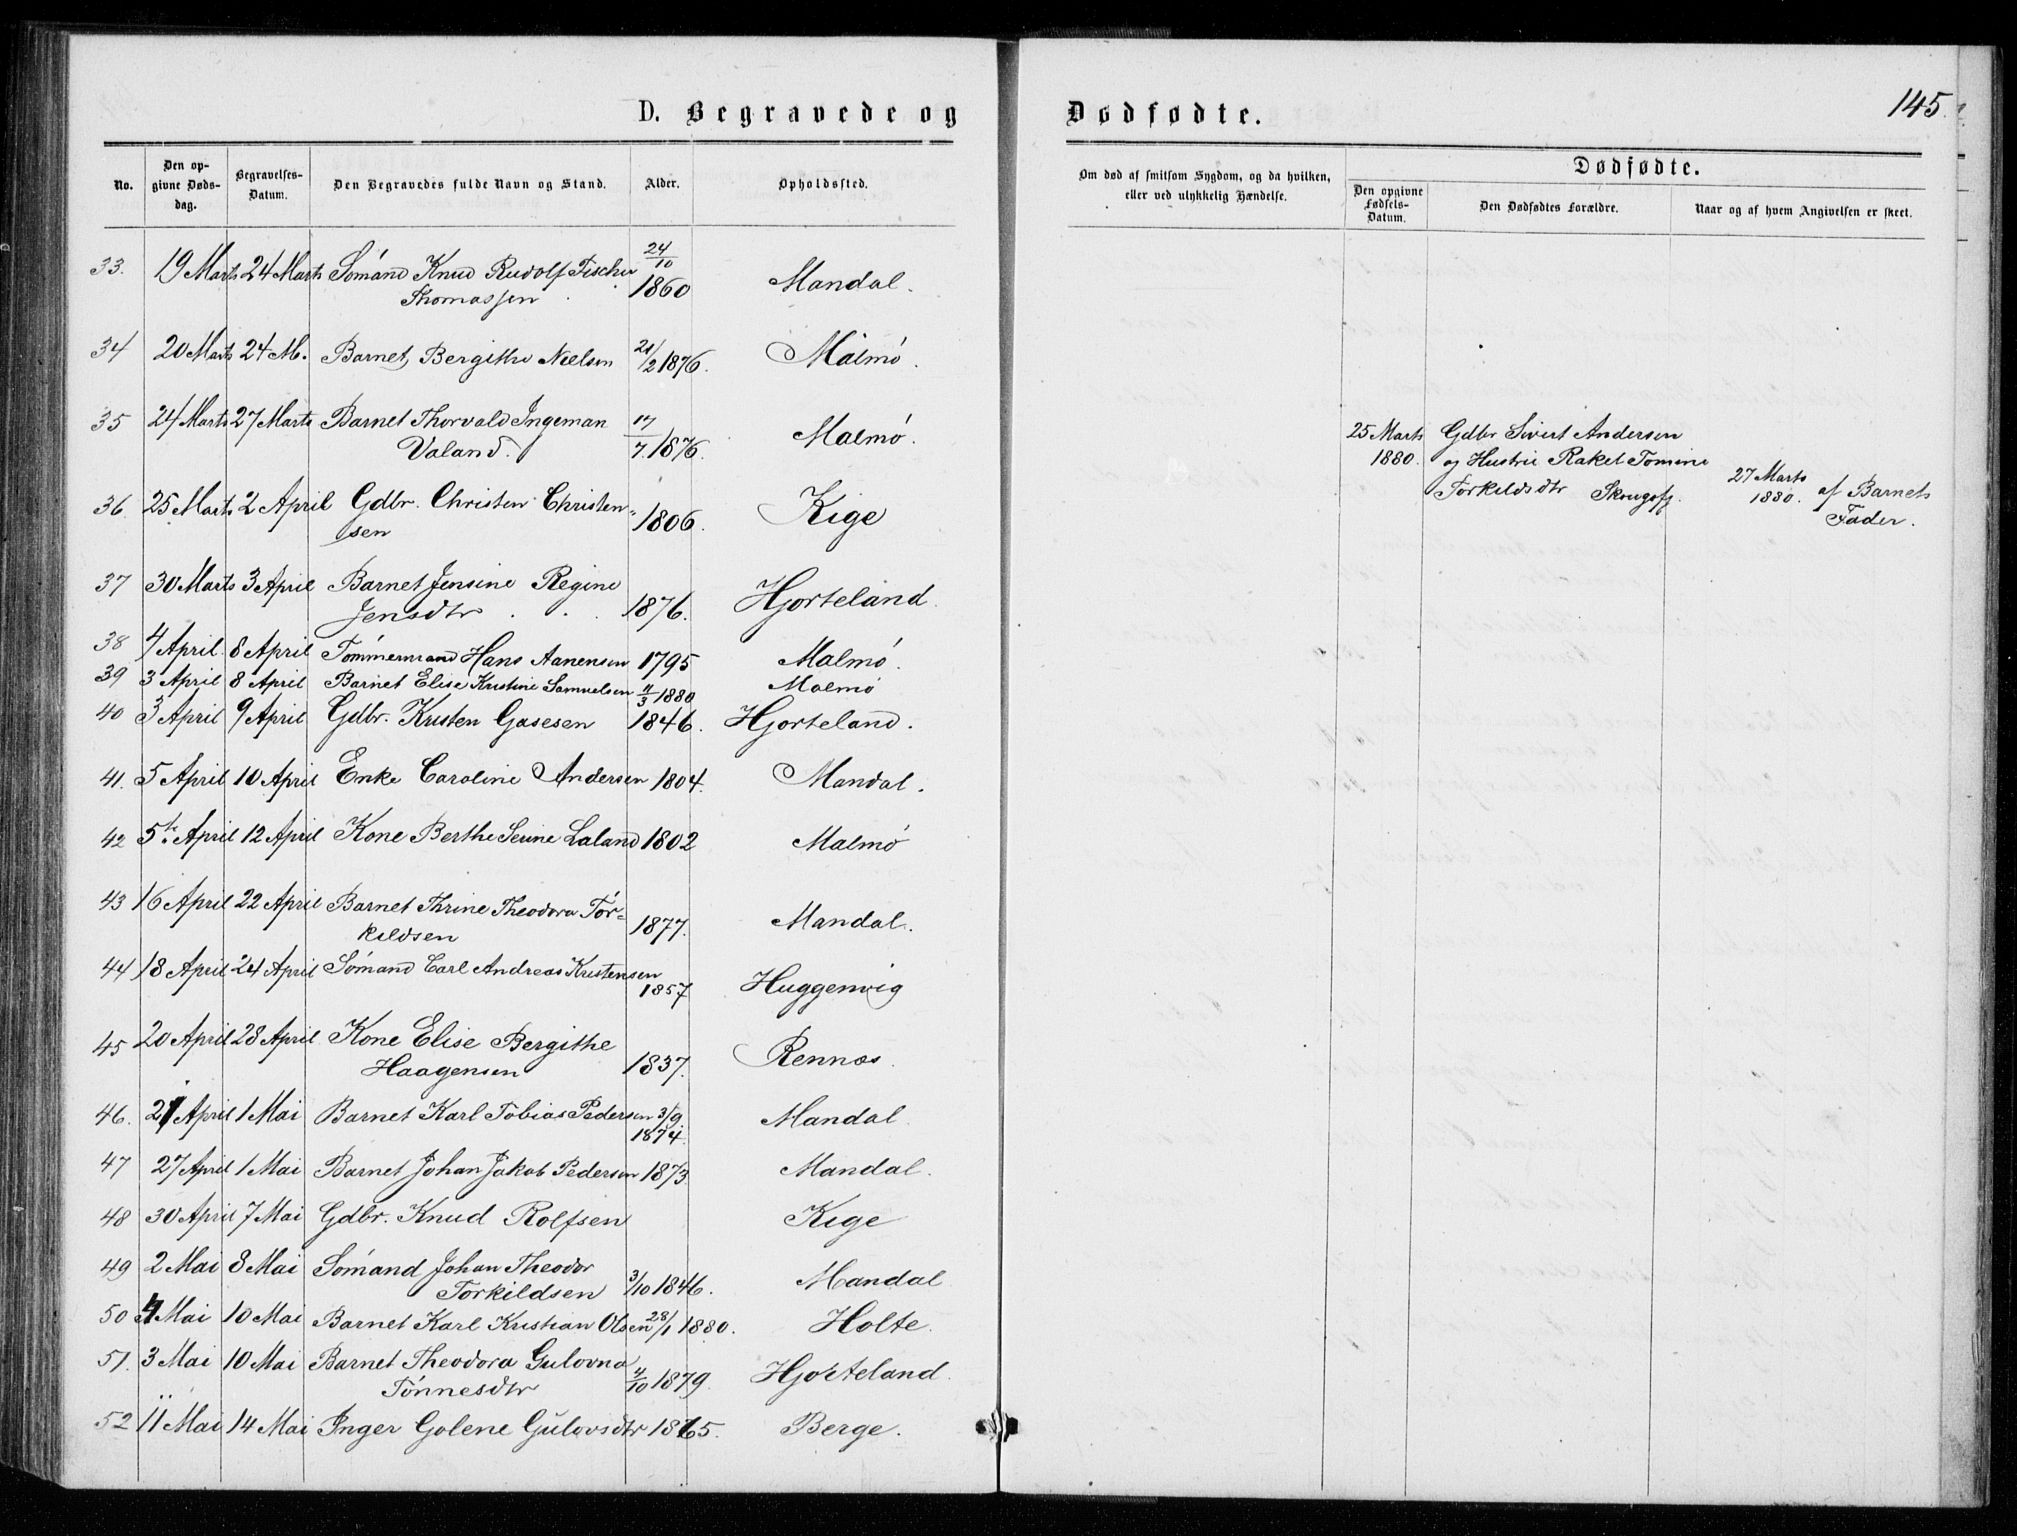 D. Begravede og Dødfødte.
145.
No. Den opgivne Dødsdag. Begravelses-Datum. Den Begravedes fulde Navn og Stand. Alder. Opholdssted.
Om død af smitsom Sygdom, og da hvilken, eller ved ulykkelig Hændelse.
Dødfødte.
Den opgivne Fødsels-Datum. Den Dødfødtes Forældre. Naar og af hvem Angivelsen er skeet.
33. 19 Marts 24 Marts Sømand Knud Rudolf Fischer 24/10
Thomassen 1860 Mandal.
34 20 Marts 24 M. Barnet Bergithe Nielsen 21/2 1876. Malmø.
35 24 Marts 27 Marts Barnet Thorvald Ingeman 17/7
Valand. 1876. Malmø.
36 25 Marts 2 April Gdbr. Christen Christen-
sen 1806. Kige
37 30 Marts 3 April Barnet Jensine Regine
Jensdtr 1876. Hjorteland.
38 4 April 8 April Tømmermand Hans Aanensen 1795 Malmø.
39 3 April 8 April Barnet Elise Kristine Samuelsen 11/3 1880 Malmø
40 3 April 9 April Gdbr. Kristen Gasesen 1846. Hjorteland.
41. 5 April 10 April Enke Caroline Andersen 1804. Mandal.
42 5te April 12 April Kone Berthe Serine Laland 1802 Malmø
43 16 April 22 April Barnet Thrine Theodora Tór-
kildsen 1877. Mandal.
44 18 April 24 April Sømand Carl Andreas Kristensen
1857 Huggenvig
45 20 April 28 April Kone Elise Bergithe
Haagensen 1837. Rennæs.
46. 21 April 1 Mai Barnet Karl Tobias Pedersen 3/9
1874. Mandal.
47 27 April 1 Mai Barnet Johan Jakob Pedersen 1873 Mandal.
48 30 April 7 Mai Gdbr. Knud Rolfsen Kige
49 2 Mai 8 Mai Sømand Johan Theodor
Torkildsen 3/10 1846. Mandal
50 4 Mai 10 Mai Barnet Karl Kristian Olsen 28/1 1880. Holte.
51. 3 Mai 10 Mai Barnet Theodora Gulovna
Tønnesdtr 4/10 1879. Hjorteland.
52 11 Mai 14 Mai Inger Golene Gulovsdtr 1865. Berge.
25 Marts Gdbr Sivert Andersen
1880. og Hustrue Rakel Tomine
Torkildsdtr 27 Marts
1880. af Barnets
Fader.